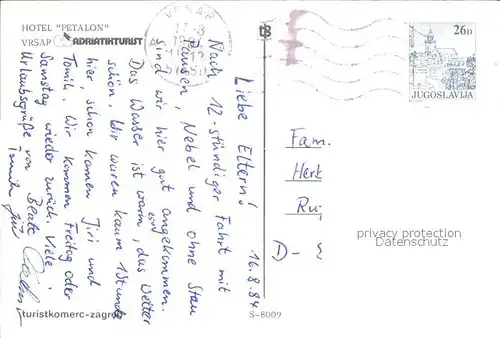 HOTEL "PETALON"
VRSAR ADRIATIKTURIST
VRSAR
26D
JUGOSLAVIJA
16.8.84
Liebe Eltern!
Nach 12-stündiger Fahrt mit
Pausen, Nebel und ohne Stau
sind wir hier gut angekommen.
Das Wasser ist warm, das Wetter
schön. Wir waren kaum 1 Stunde
hier, schon kamen Jiri und
Tomik. Wir kommen Freitag oder
Samstag wieder zurück. Viele
Urlaubsgrüße von Beate
Fam.
Herk
D-
privacy protection
Datenschutz
turistkomerc-zagreb
S-8009